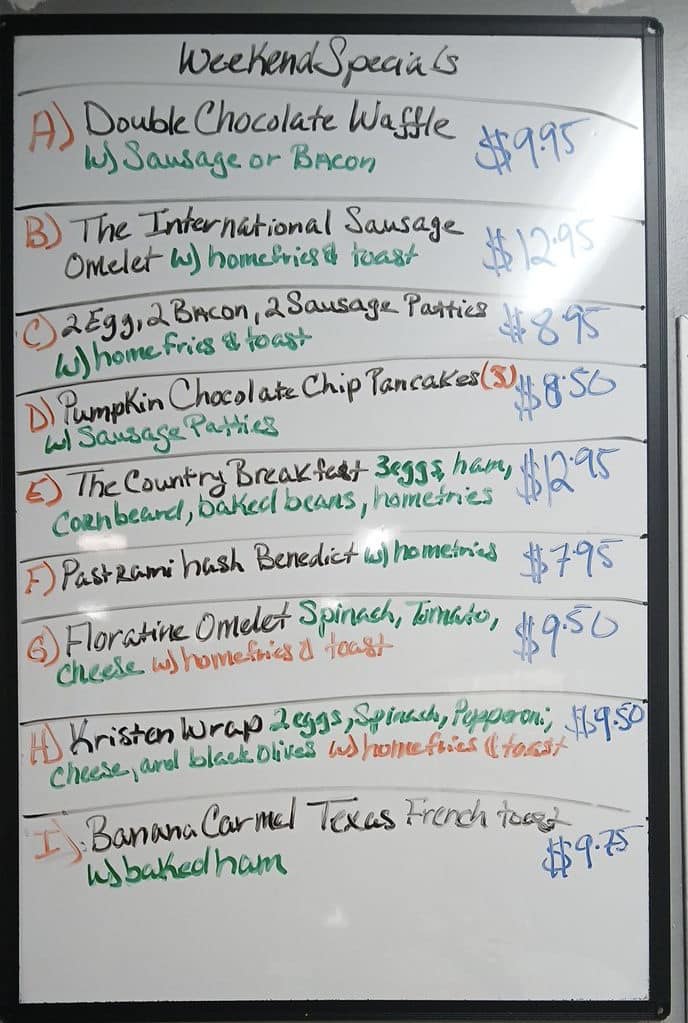 Weekend Specials
A) Double Chocolate Waffle $9.95
w) Sausage or Bacon
B) The International Sausage $12.95
Omelet w) homefries & toast
C) 2 Egg, 2 Bacon, 2 Sausage Patties $8.95
w) home fries & toast
D) Pumpkin Chocolate Chip Pancakes (3) $8.50
w/ Sausage Patties
E) The Country Breakfast 3eggs, ham, $12.95
Cornbeard, baked beans, homefries
F) Pastrami hash Benedict w) homefries $7.95
G) Floratine Omelet Spinach, Tomato, $9.50
Cheese w) homefries & toast
H) Kristen Wrap 2eggs, Spinach, Pepperoni, $9.50
Cheese, and black olives w) homefries & toast
I) Banana Carmel Texas French toast
w) baked ham $9.75